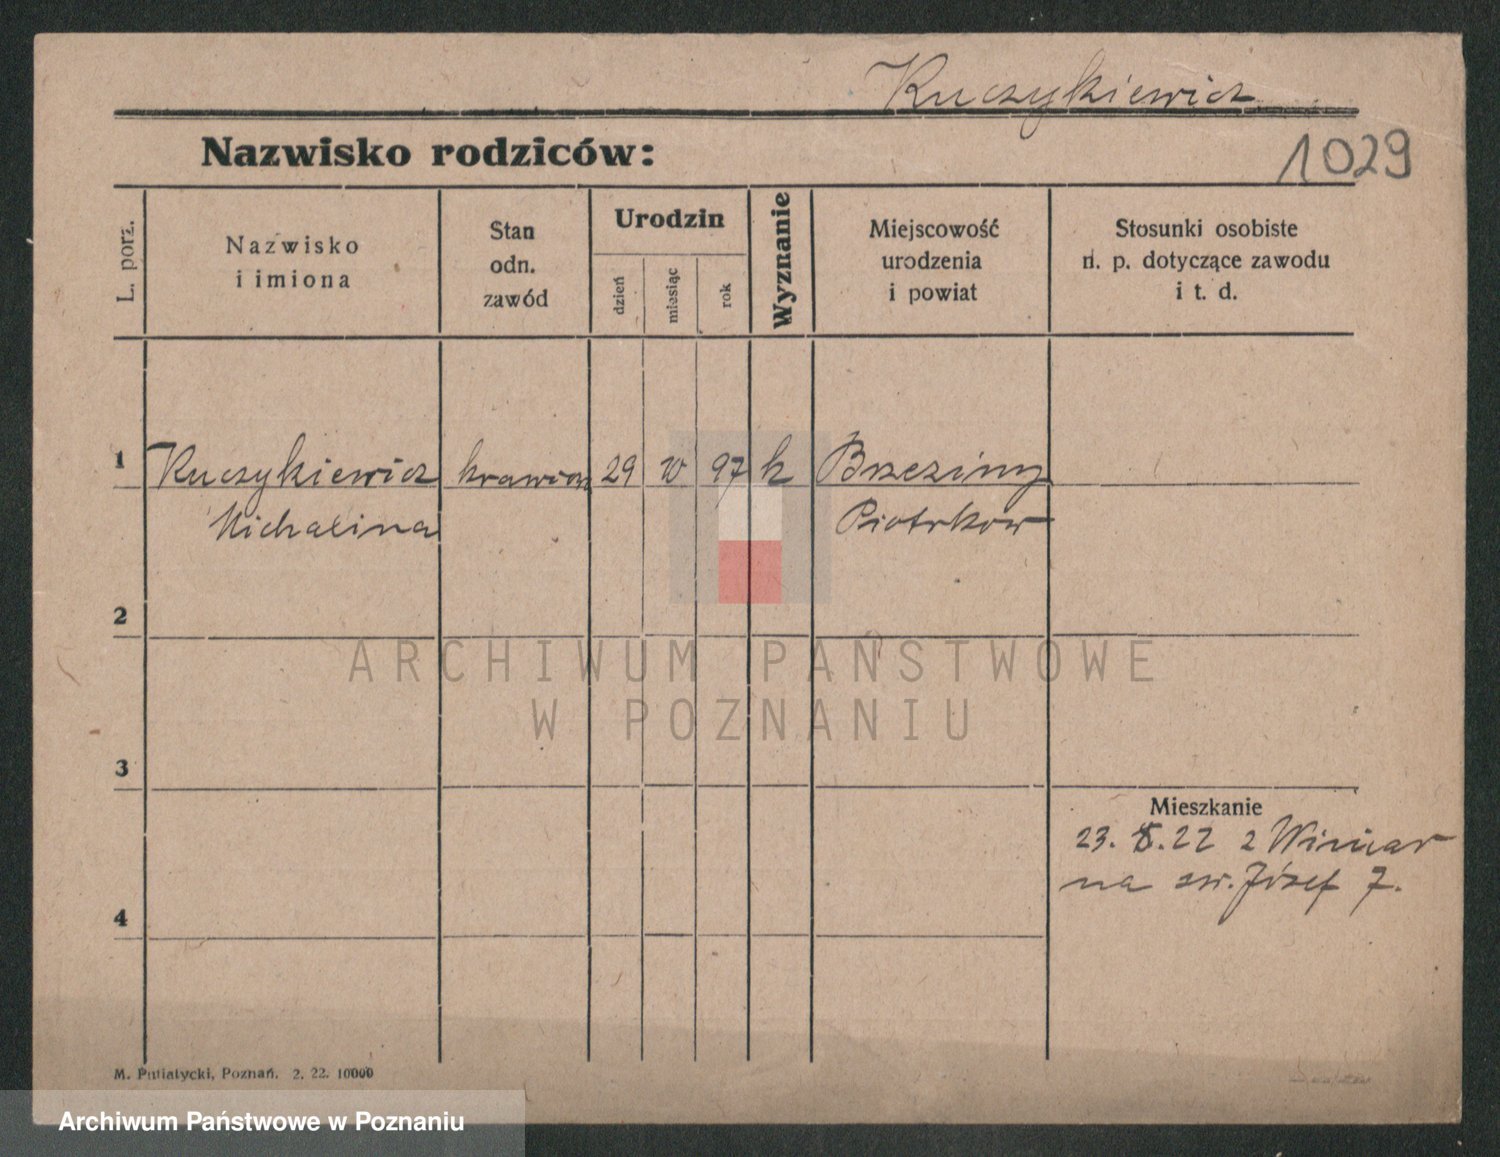 Kuczykiewicz
Nazwisko rodziców:
1029
L. porz.
Nazwisko
i imiona
Stan
odn.
zawód
Urodzin
dzień
miesiąc
rok
Wyznanie
Miejscowość
urodzenia
i powiat
Stosunki osobiste
n. p. dotyczące zawodu
i t. d.
1 Kuczykiewicz 29 97 k Brzeziny
Michalina Piotrków
2
ARCHIWUM PAŃSTWOWE
W POZNANIU
3
Mieszkanie
23. 8. 22 z Winiar
na św. Józef 7.
4
M. Putiatycki, Poznań. 2. 22. 10000
Archiwum Państwowe w Poznaniu